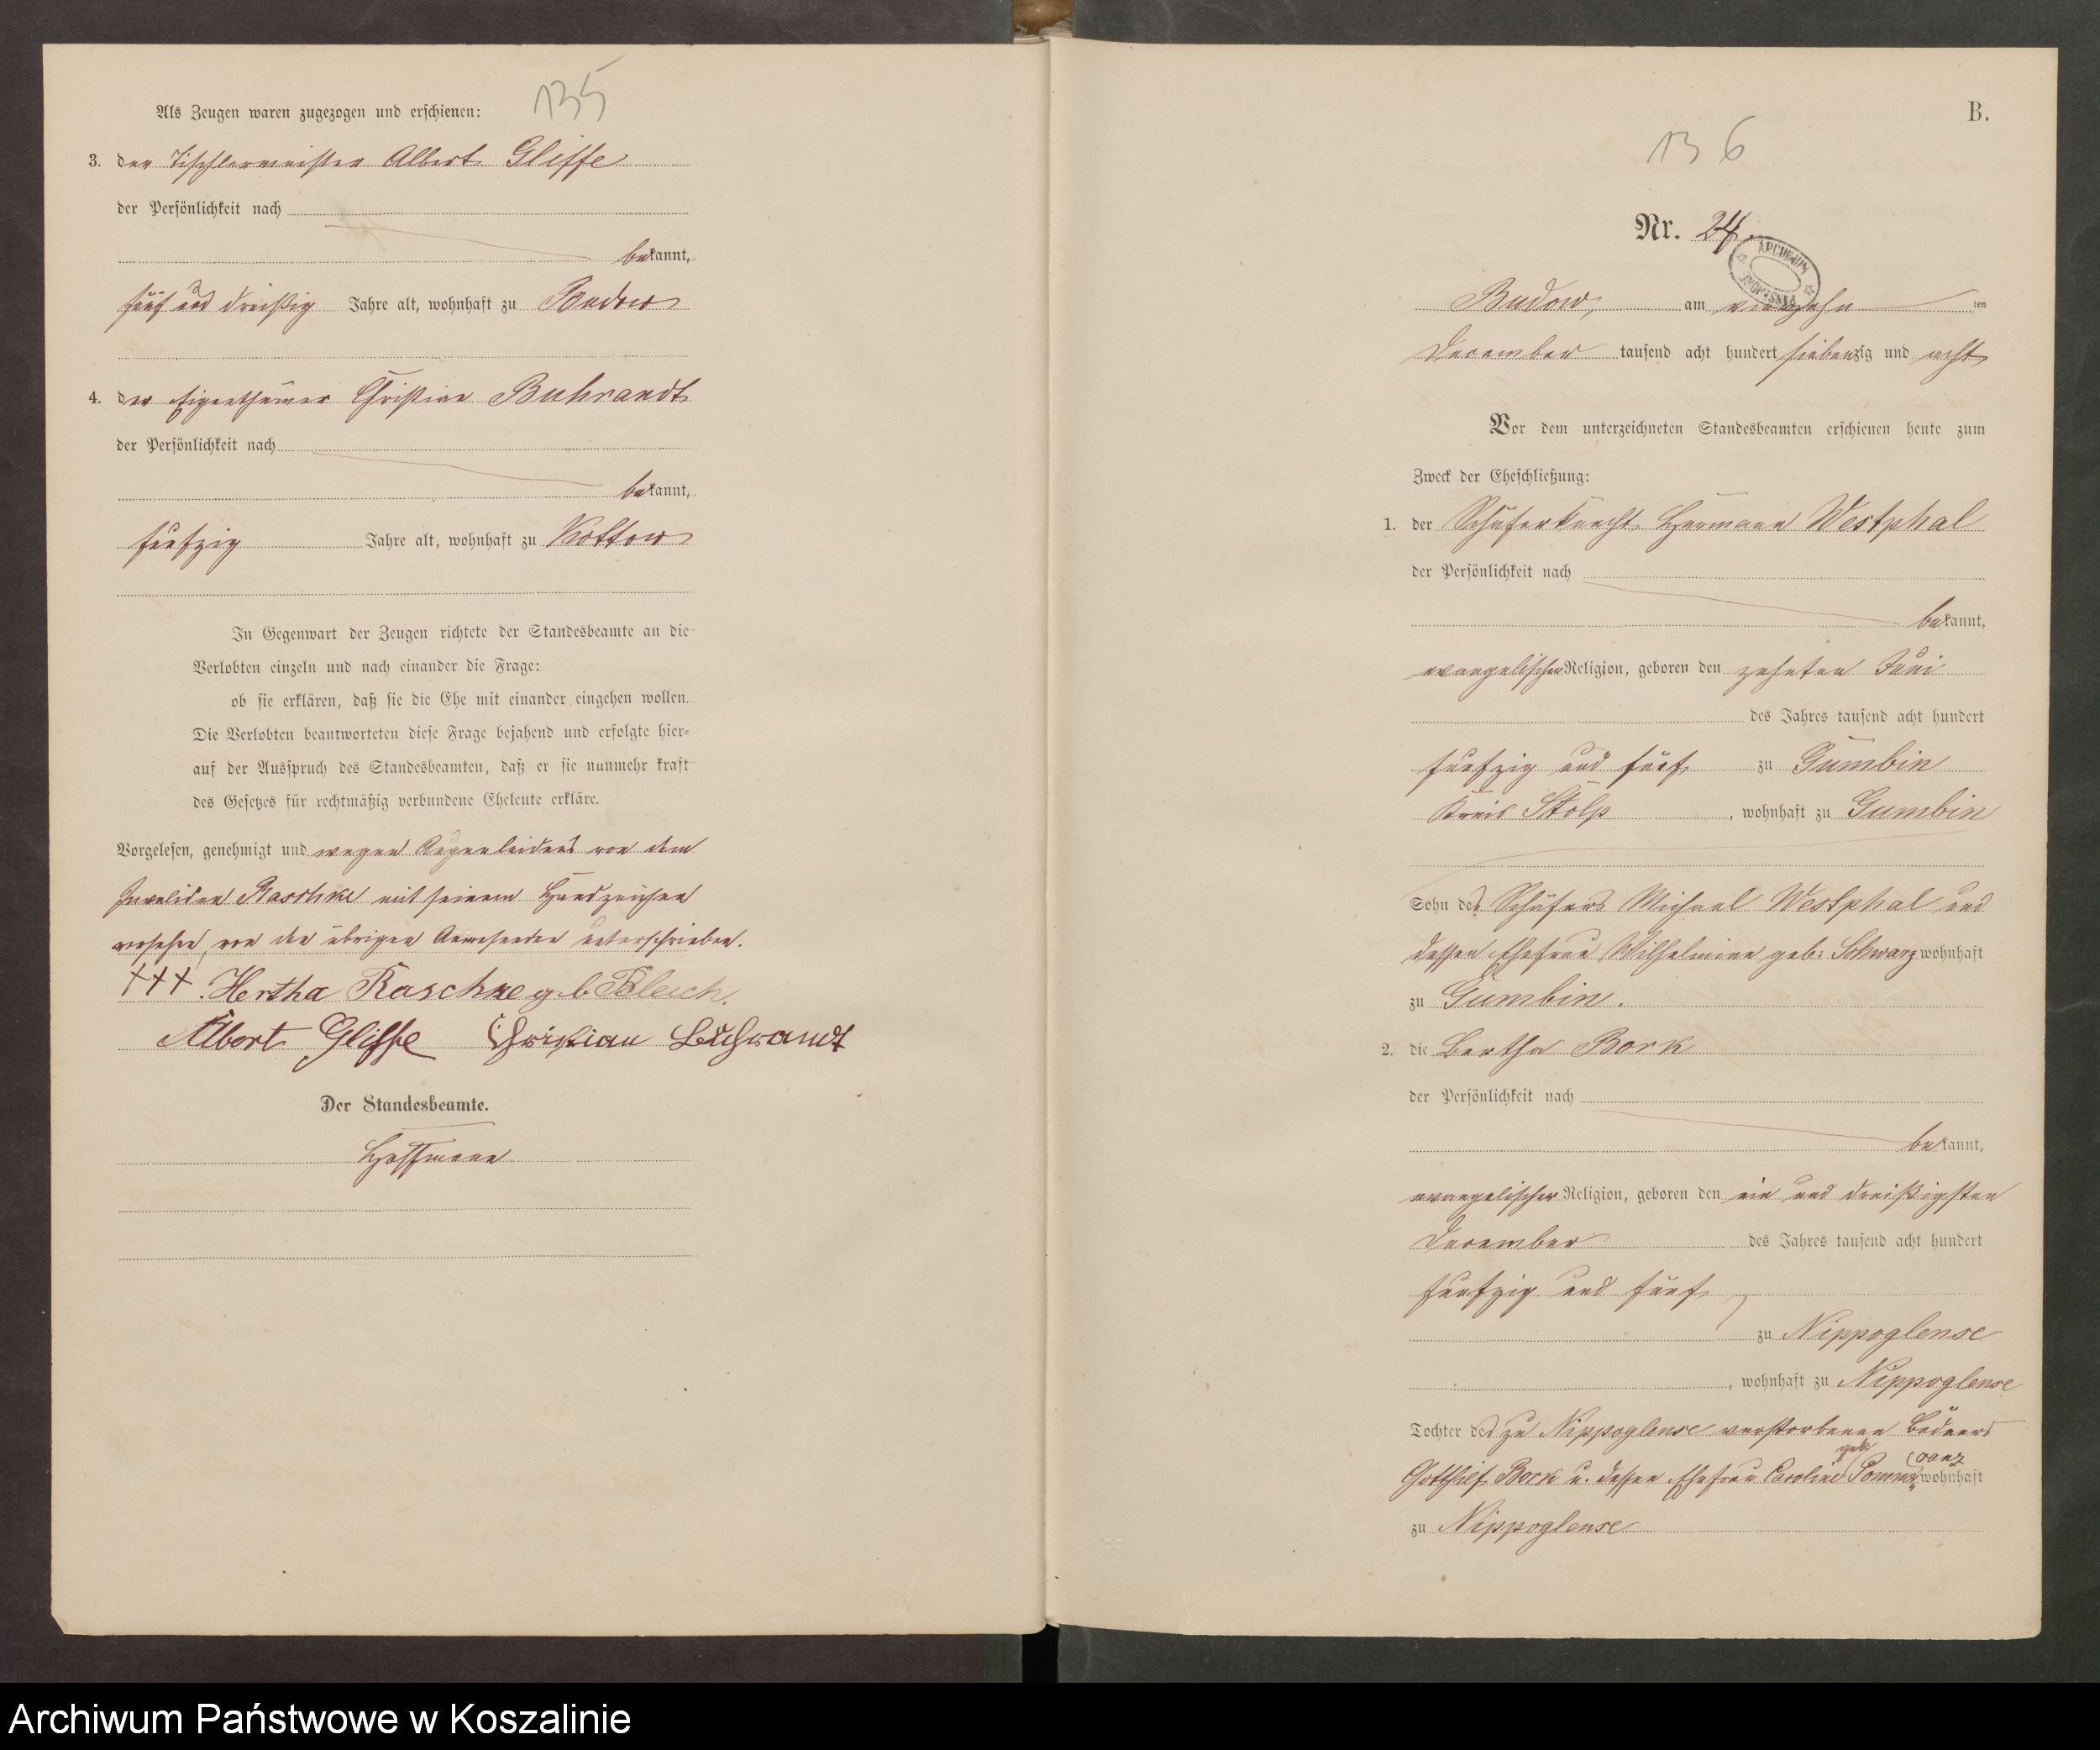 135
Als Zeugen waren zugezogen und erschienen:
3. der Tischlermeister Albert Gliffe
der Persönlichkeit nach
bekannt,
fünf und dreißig Jahre alt, wohnhaft zu Budow
4. der Eigenthümer Christian Buhrandt
der Persönlichkeit nach
bekannt,
funfzig Jahre alt, wohnhaft zu Kottow
In Gegenwart der Zeugen richtete der Standesbeamte an die
Verlobten einzeln und nach einander die Frage:
ob sie erklären, daß sie die Ehe mit einander eingehen wollen.
Die Verlobten beantworteten diese Frage bejahend und erfolgte hier-
auf der Ausspruch des Standesbeamten, daß er sie nunmehr kraft
des Gesetzes für rechtmäßig verbundene Eheleute erkläre.
Vorgelesen, genehmigt und wegen Augenleidens von dem
Invaliden Raschke mit seinem Handzeichen
versehen, von den übrigen Anwesenden unterschrieben.
+++ Hertha Raschke geb Bleich.
Albert Gliffe Christian Buhrandt
Der Standesbeamte.
Hoffmann
B.
136
Nr. 24.
ARCHIWUM
Budow, am vierzehn ten
December tausend acht hundert siebenzig und acht
Vor dem unterzeichneten Standesbeamten erschienen heute zum
Zweck der Eheschließung:
1. der Schäferknecht Hermann Westphal
der Persönlichkeit nach
bekannt,
evangelischer Religion, geboren den zehnten Juni
des Jahres tausend acht hundert
funfzig und fünf zu Gumbin
Kreis Stolp, wohnhaft zu Gumbin
Sohn des Schäfers Michael Westphal und
dessen Ehefrau Wilhelmine geb. Schwarz wohnhaft
zu Gumbin.
2. die Bertha Bork
der Persönlichkeit nach
bekannt,
evangelischer Religion, geboren den ein und dreißigsten
December des Jahres tausend acht hundert
funfzig und fünf
zu Nippoglense
, wohnhaft zu Nippoglense
Tochter des zu Nippoglense verstorbenen Büdners
Gotthilf Bork u. dessen Ehefrau Caroline geb. wohnhaft
zu Nippoglense
Archiwum Państwowe w Koszalinie